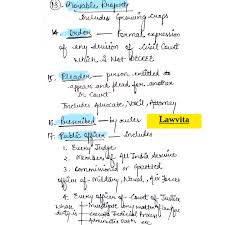 13 Movable Property
Includes Growing crops
14. Order - formal expression
of any decision of Civil Court
which is Not DECREE
15. Pleader - person entitled to
appear and plead for another
in Court
Includes Advocate, Vakil, Attorney
16. Prescribed - by rules
Lawvita
17. Public officer - includes
1. Every Judge
2. Member of All India Service
3. Commissioned or Gazetted
officer of Military, Naval, Air Forces
4. Every officer of Court of Justice
whose
duty is
Investigate any matter of law/for
execute Judicial Process
Administer oath etc